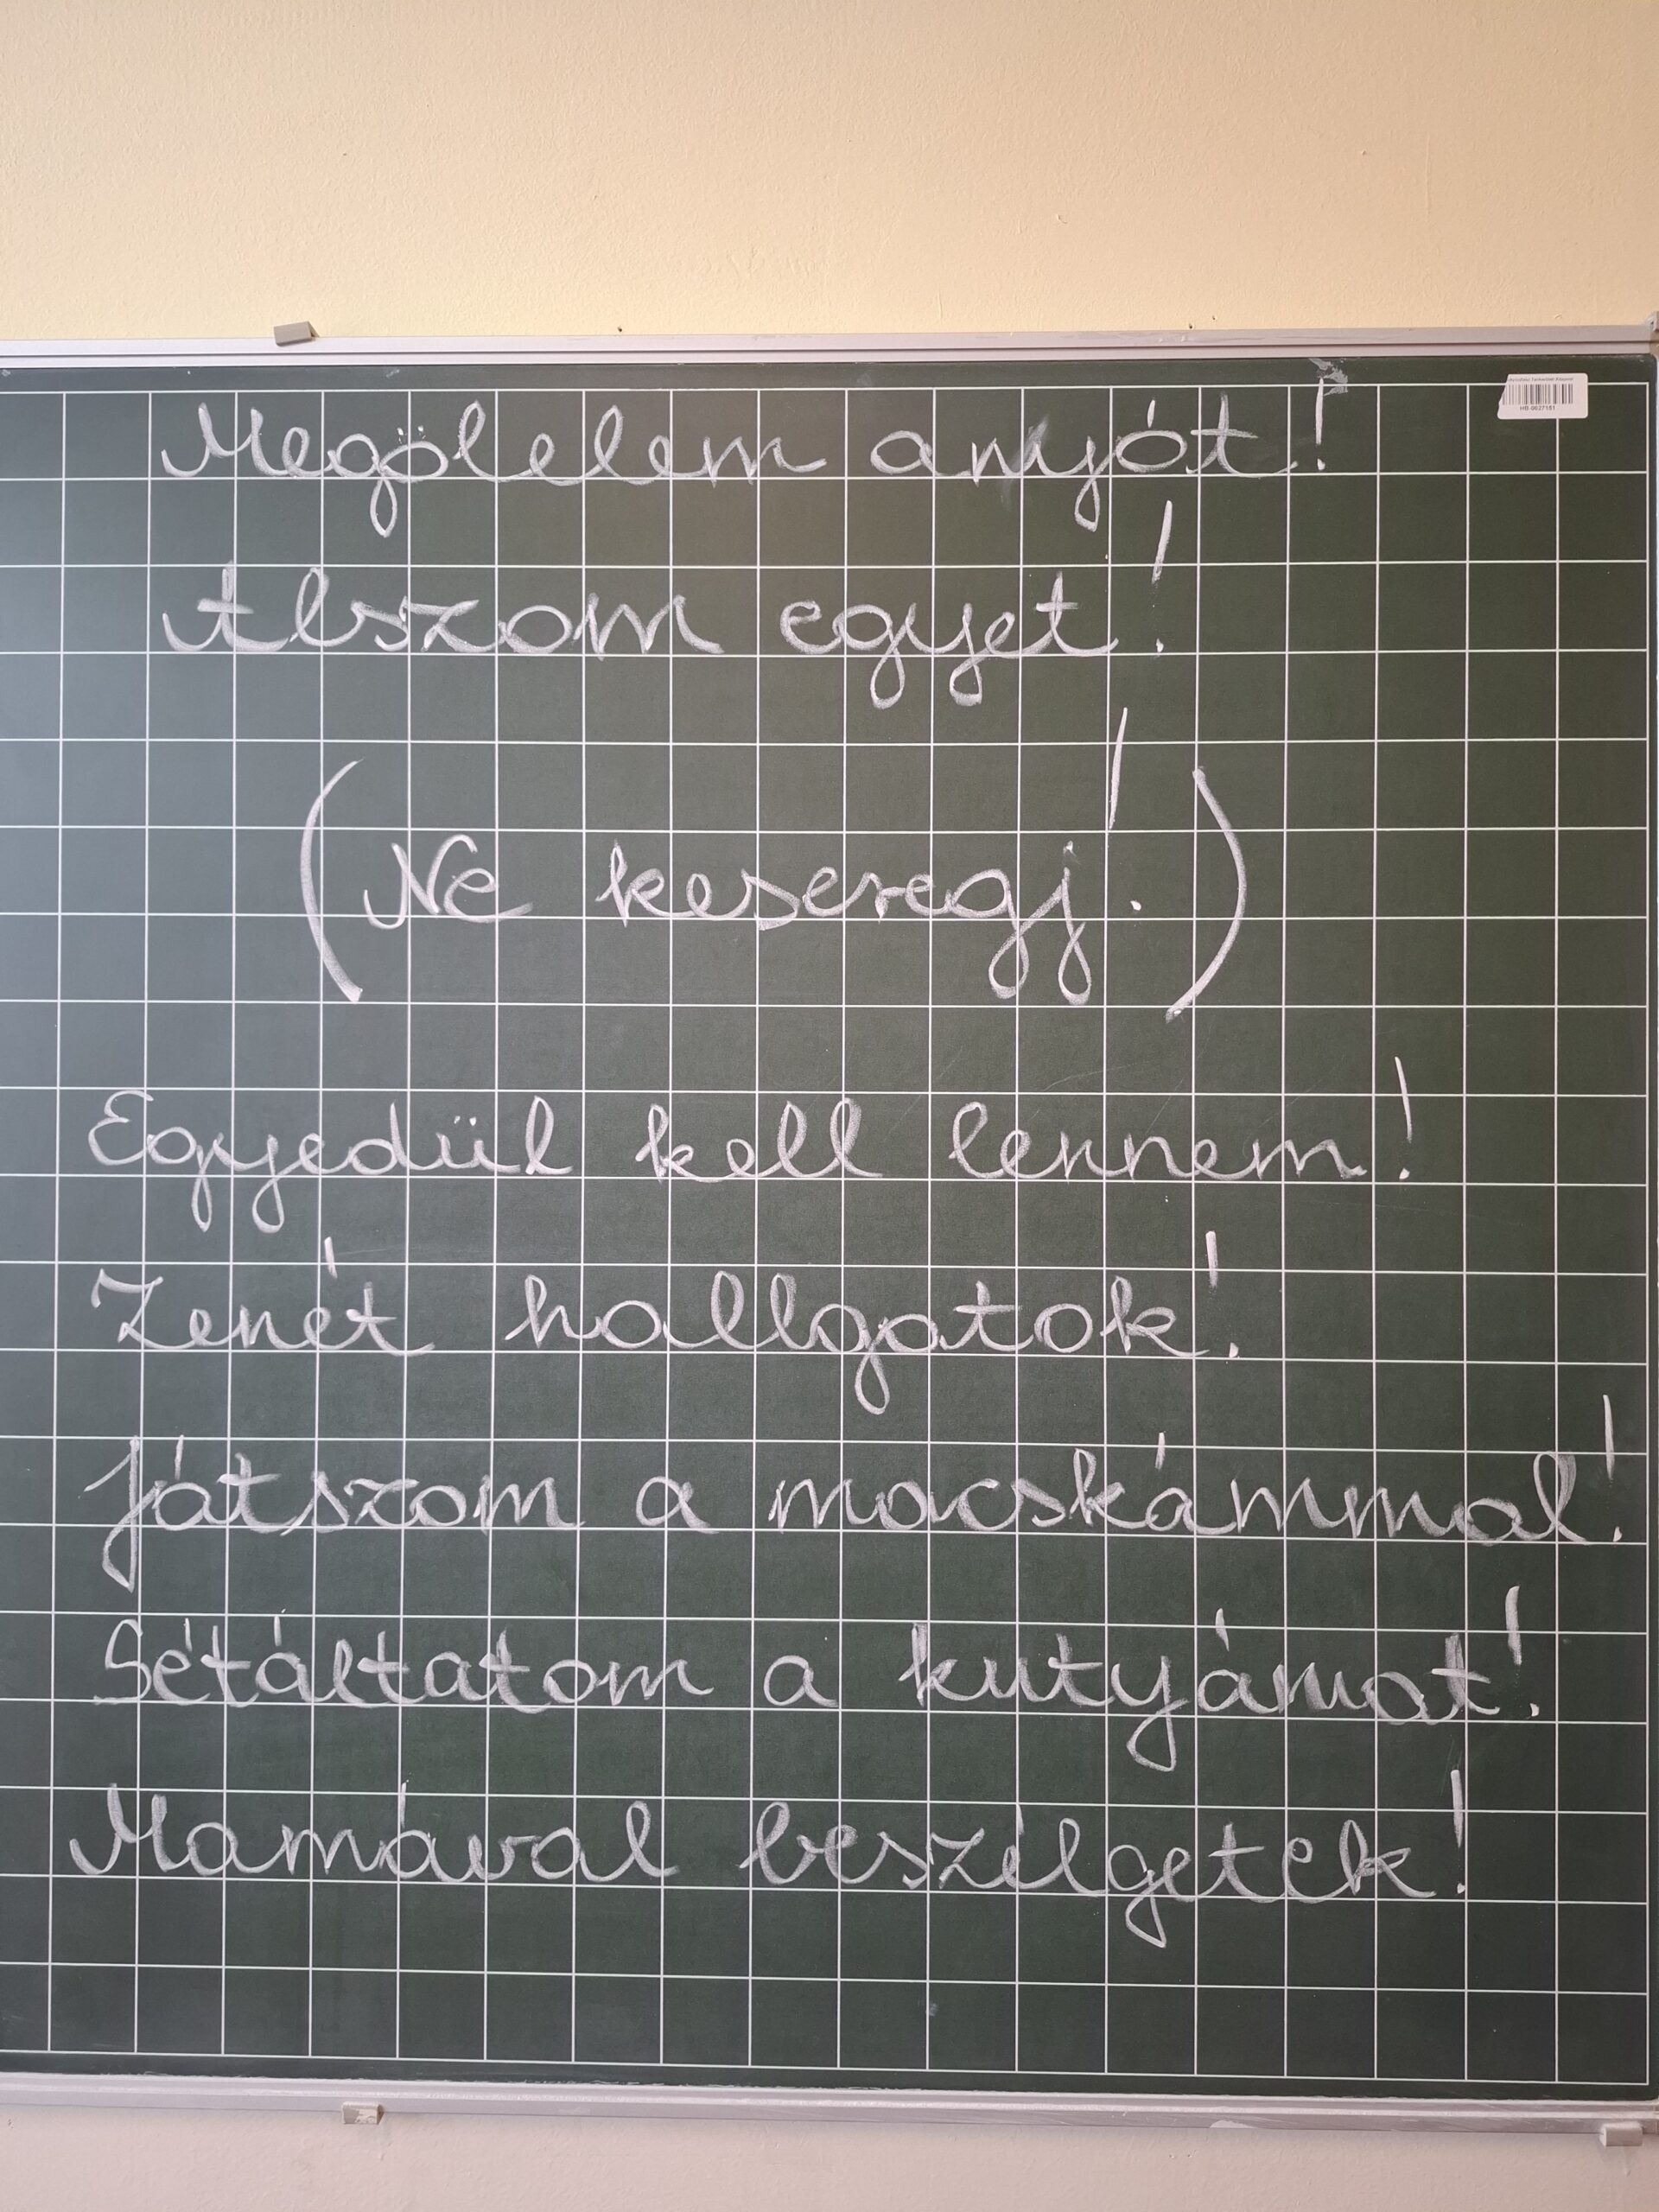 Megölelem anyót!
Alszom egyet!
(Ne keseregj!)
Egyedül kell lennem!
Zenét hallgatok!
Játszom a macskámmal!
Sétáltatom a kutyámat!
Mamával beszélgetek!